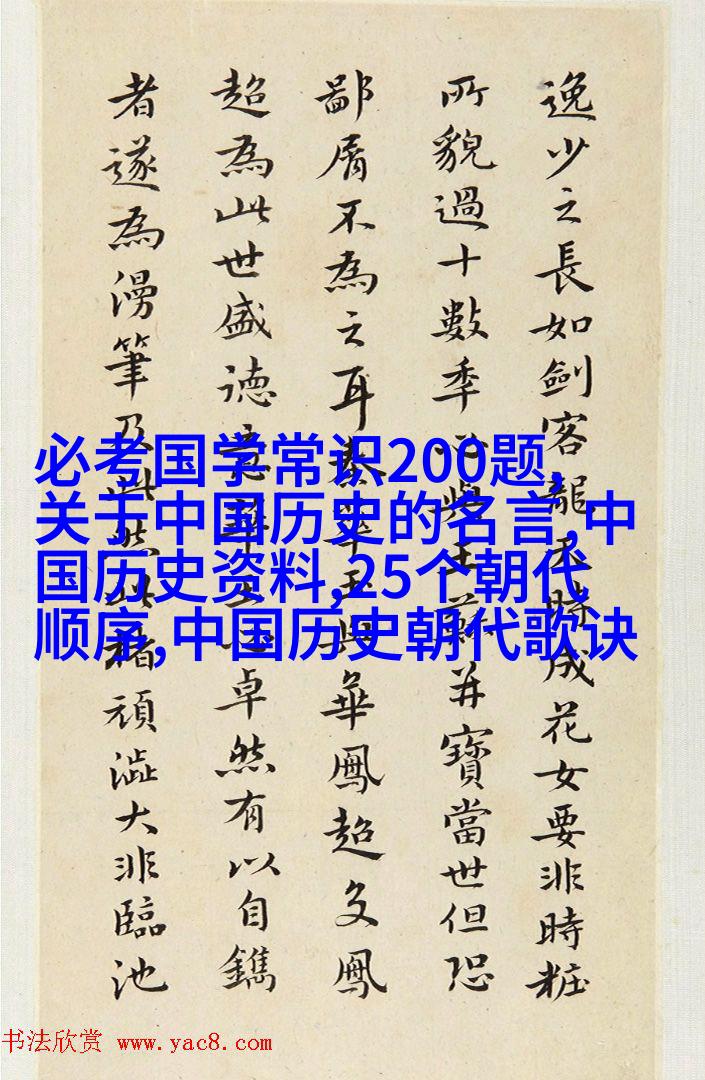 逸少之長如劍客龍天時成花女要非時粧
所貌過十數季必與王蘇并寶當世但恐
鄙屑不為之耳秦華玉與華鳳超文鳳
超為此世盛德意華玉卓然有以自鐫
者遂為漫筆及此然此楮頑澁大非臨池
必考国学常识200题,
关于中国历史的名言,中
国历史资料,25个朝代
顺序,中国历史朝代歌诀
书法欣赏 www.yac8.com